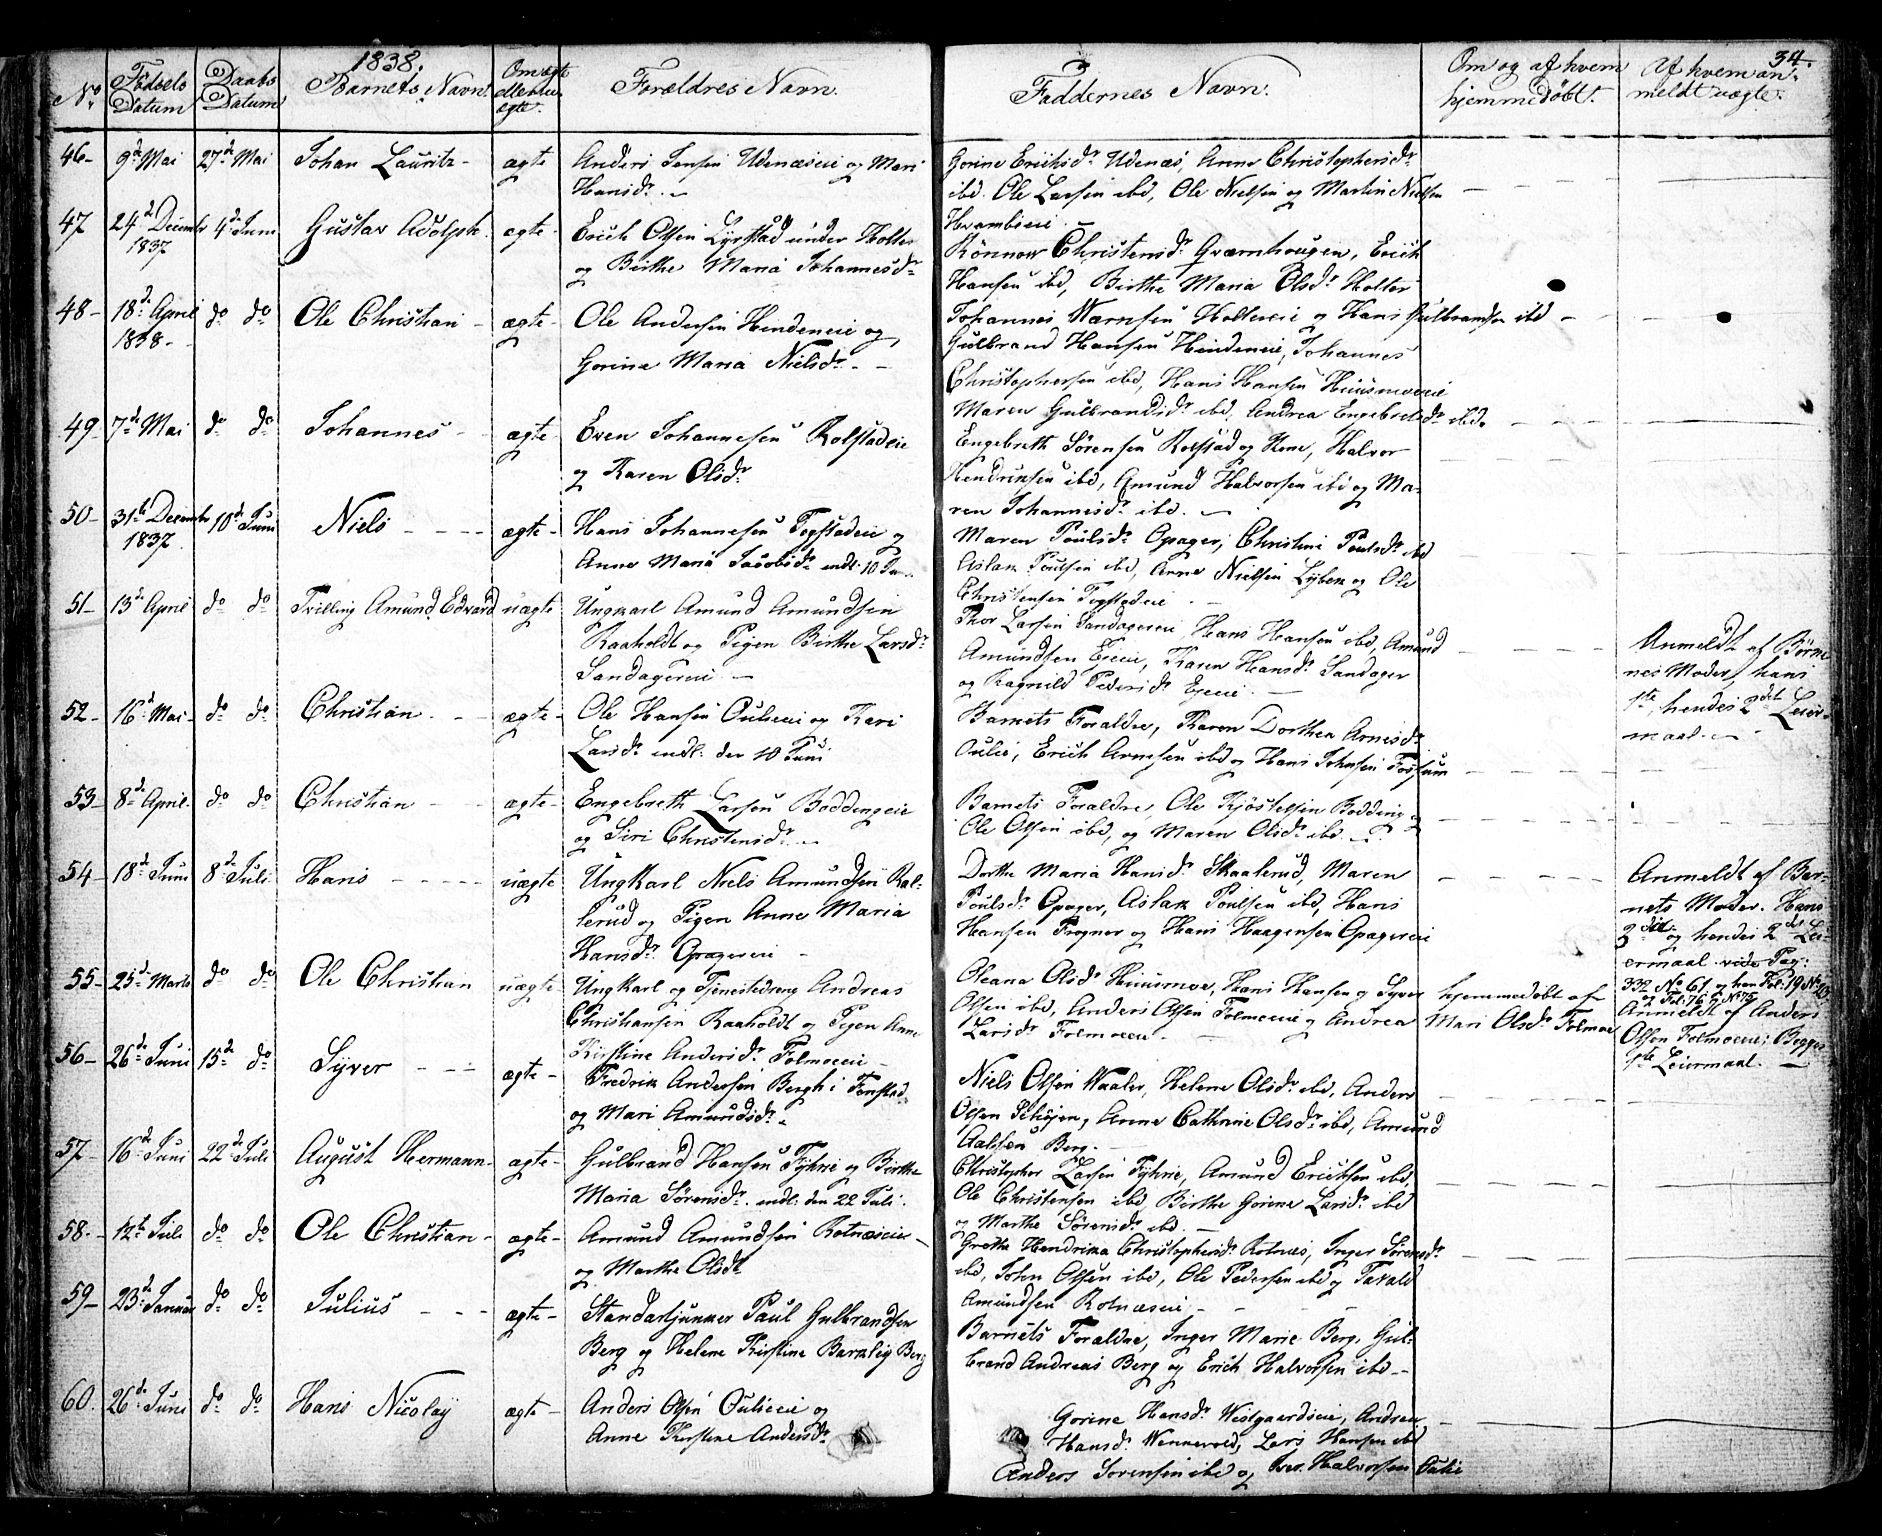 1838.
34.
No Fødsels Datum Daabs Datum Barnets Navn. Om ægte eller uægte. Forældres Navn.
Faddernes Navn. Om og af hvem hjemmedøbt. Af hvem anmeldt uægte.
46 9d Mai 27d Mai Johan Lauritz ægte Anders Jensen Udenæseie og Mari
Hansdr.
Gorine Erichsdr Udenæs, Anne Christophersdr
ibd. Ole Larsen ibd, Ole Nielsen og Martin Nielsen
47 24d Decembr 1837 4d Juni Gustav Adolph ægte Erich Olsen Lystad under Holter
og Birthe Maria Johannesdr
Rönnow Christensdr Græmhougen, Erich
Hansen ibd, Birthe Maria Olsdr Holter
Johannes Hollereie og Hans Gulbrandsen ibd
48 18d April 1838 do do Ole Christian ægte Ole Andersen Hendeneie og
Gorine Maria Nielsdr.
Gulbrand Hansen Hendeneie, Johannes
Christophersen ibd, Hans Hansen Huusmoeeie
Maren Gulbrandsdr ibd. Andrea Engebretsdr ibd.
49 7d Mai do do Johannes ægte Even Johannesen Rolstadeie
og Karen Olsdr
Engebreth Sørensen Rolstad og Kone, Halvor
Hendrichsen ibd, Amund Halvorsen ibd og Ma-
ren Johannesdr ibd.
50 31te Decembr 1837 10d Juni Niels ægte Hans Johannesen Togstadeie og
Anne Maria Jacobsdr indl. 10 Jun
Maren Poulsdr Opager, Christine Poulsdr ibd
Aslak Poulsen ibd, Anne Nielsen Lybek og Ole
Christensen Togstadeie
51 13d April do do Tvilling Amund Edvard uægte Ungkarl Amund Amundsen
Raaholdt og Pigen Birthe Larsdr
Sandagereie
Thor Larsen Sandagereie, Hans Hansen ibd, Amund
Amundsen Eieeie, Karen Hansdr Sandager
og Ragnild Pedersdr Eieeie.
Anmeldt af Børne-
nes Moder, hans
1te, hendes 2det Leier-
maal.
52 16d Mai do do Christian ægte Ole Hansen Oulieeie og Kari
Larsdr indl. den 10 Juni
Barnets Forældre, Karen Dorthea Arnesdr
Oulie, Erich Arnesen ibd og Hans Johnsen Fossum
53 8d April do do Christian ægte Engebreth Larsen Boddingeie
og Siri Christensdr.
Barnets Forældre, Ole Kjøstelsen Bodding og
Ole Olsen ibd, og Maren Olsdr ibd.
54 18d Juni 8d Juli Hans uægte Ungkarl Niels Amundsen Kal-
lerud og Pigen Anne Maria
Hansdr Opagereie
Dorthe Maria Hansdr Skaalerud, Maren
Poulsdr Opager, Aslak Poulsen ibd, Hans
Hansen Frogner og Hans Haagensen Opagereie
Anmeldt af Bar-
nets Moder. Hans
3die og hendes 2det Lei-
ermaal vide Pag:
332 No 61 og hans Fol. 19 No
og Fol. 76 No 75
55 25d Marts do do Ole Christian uægte Ungkarl og Tjenestedreng Andreas
Christiansen Raaholdt og Pigen Anne
Kirstine Andersdr Folmoeeie
Oleana Olsdr Huusmoe, Hans Hansen og Syver
Olsen ibd, Anders Olsen Folmoeeie og Andrea
Larsdr Folmoeeie
hjemmedøbt af
Mari Olsdr Folmoe
Anmeldt af Anders
Olsen Folmoeeie; Begges
1te Leiermaal.
56 26d Juni 15d do Syver ægte Fredrik Andersen Bergh i Tenstad
og Mari Amundsdr.
Niels Olsen Waaler, Helene Olsdr ibd, Anders
Olsen Schøjen, Anne Cathrine Olsdr ibd, Amund
Berg.
57 16d Juni 22d Juli August Hermann ægte Gulbrand Hansen Tyhrie og Birthe
Maria Sørensdr. indl. den 22 Juli.
Christopher Larsen Tyhrie, Amund Erichsen ibd,
Ole Christensen ibd Birthe Gorine Larsdr ibd
og Marthe Sørensdr ibd.
58 12te Juli do do Ole Christian ægte Amund Amundsen Rotnæseie
og Marthe Olsdr
Grethe Hendrika Christophersdr Rotnes, Inger Sørensdr
ibd, John Olsen ibd, Ole Pedersen ibd og Tarald
Amundsen Rotnæseie
59 23d Januar do do Julius ægte Standartjunker Paul Gulbrandsen
Berg og Helene Kirstine Barkley Berg
Barnets Forældre, Inger Marie Berg, Gul-
brand Andreas Berg og Erich Halvorsen ibd
60. 26d Juni do do Hans Nicolay ægte Anders Olsen Oulieeie og
Anne Kirstine Andersdr
Gorine Hansdr Westgaardseie, Andrea
Hansdr Wennevold, Lars Hansen ibd
Anders Sørensen ibd og Halvorsen Oulie